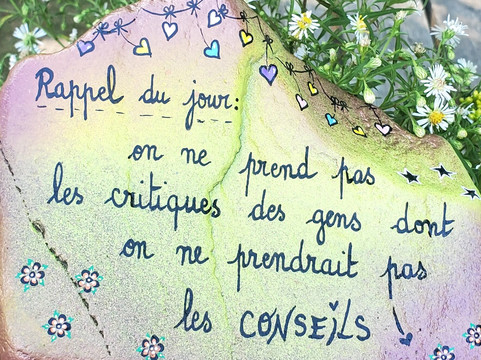 Rappel du jour:
on ne prend pas
les critiques des gens dont
on ne prendrait pas
les CONSEiLS !